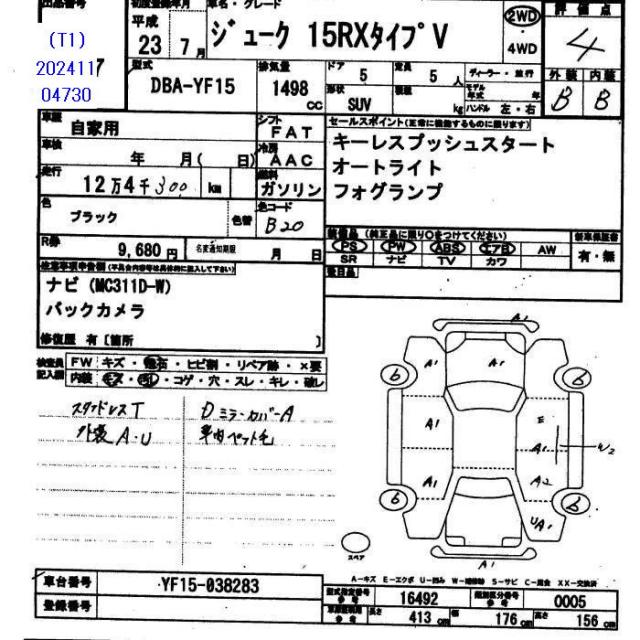 出品番号 初度登録年月 車名・グレード 評価点
(T1) 平成 23 7月 ジューク 15RXタイプV 2WD 4WD 4
202411
04730
7
型式 排気量 ドア 5 定員 5人 ディーラー・並行 外装 内装
DBA-YF15 1498 CC 形状 SUV 積載 kg モデル年式 年 ハンドル 左・右 B B
車歴 自家用 シフト FAT セールスポイント(正常に機能するものに限ります)
車検 年 月( 日) 冷房 AAC キーレスプッシュスタート
走行 12万4千300 km 燃料 ガソリン オートライト
フォグランプ
色 ブラック 色替 色コード B20
R券 9,680円 名変通知期限 月 日
装備品 (純正品に限り○をつけてください) 新車保証書
PS PW ABS エアB AW 有・無
SR ナビ TV カワ
後日品
注意事項申告欄(不具合内容等は具体的に記入して下さい)
ナビ (MC311D-W)
バックカメラ
修復歴 有〔箇所 〕
検査員記入欄 FW キズ・飛石・ヒビ割・リペア跡・×要
内装 キズ・汚れ・コゲ・穴・スレ・キレ・破レ
スタッドレスT Dミラーカバー A
外装 A・U 車内ペット毛
A1
A1 A1 A1
6 6
A1 E
A1 W2
A1 A2
6 6
UA1
A1
スペア
A-キズ E-エクボ U-凹み W-補修跡 S-サビ C-腐食 XX-交換済
車台番号 YF15-038283
登録番号
型式指定番号 参考 16492 類別区分番号 参考 0005
車両説明用 参考 長さ 413 cm 幅 176 cm 高さ 156 cm